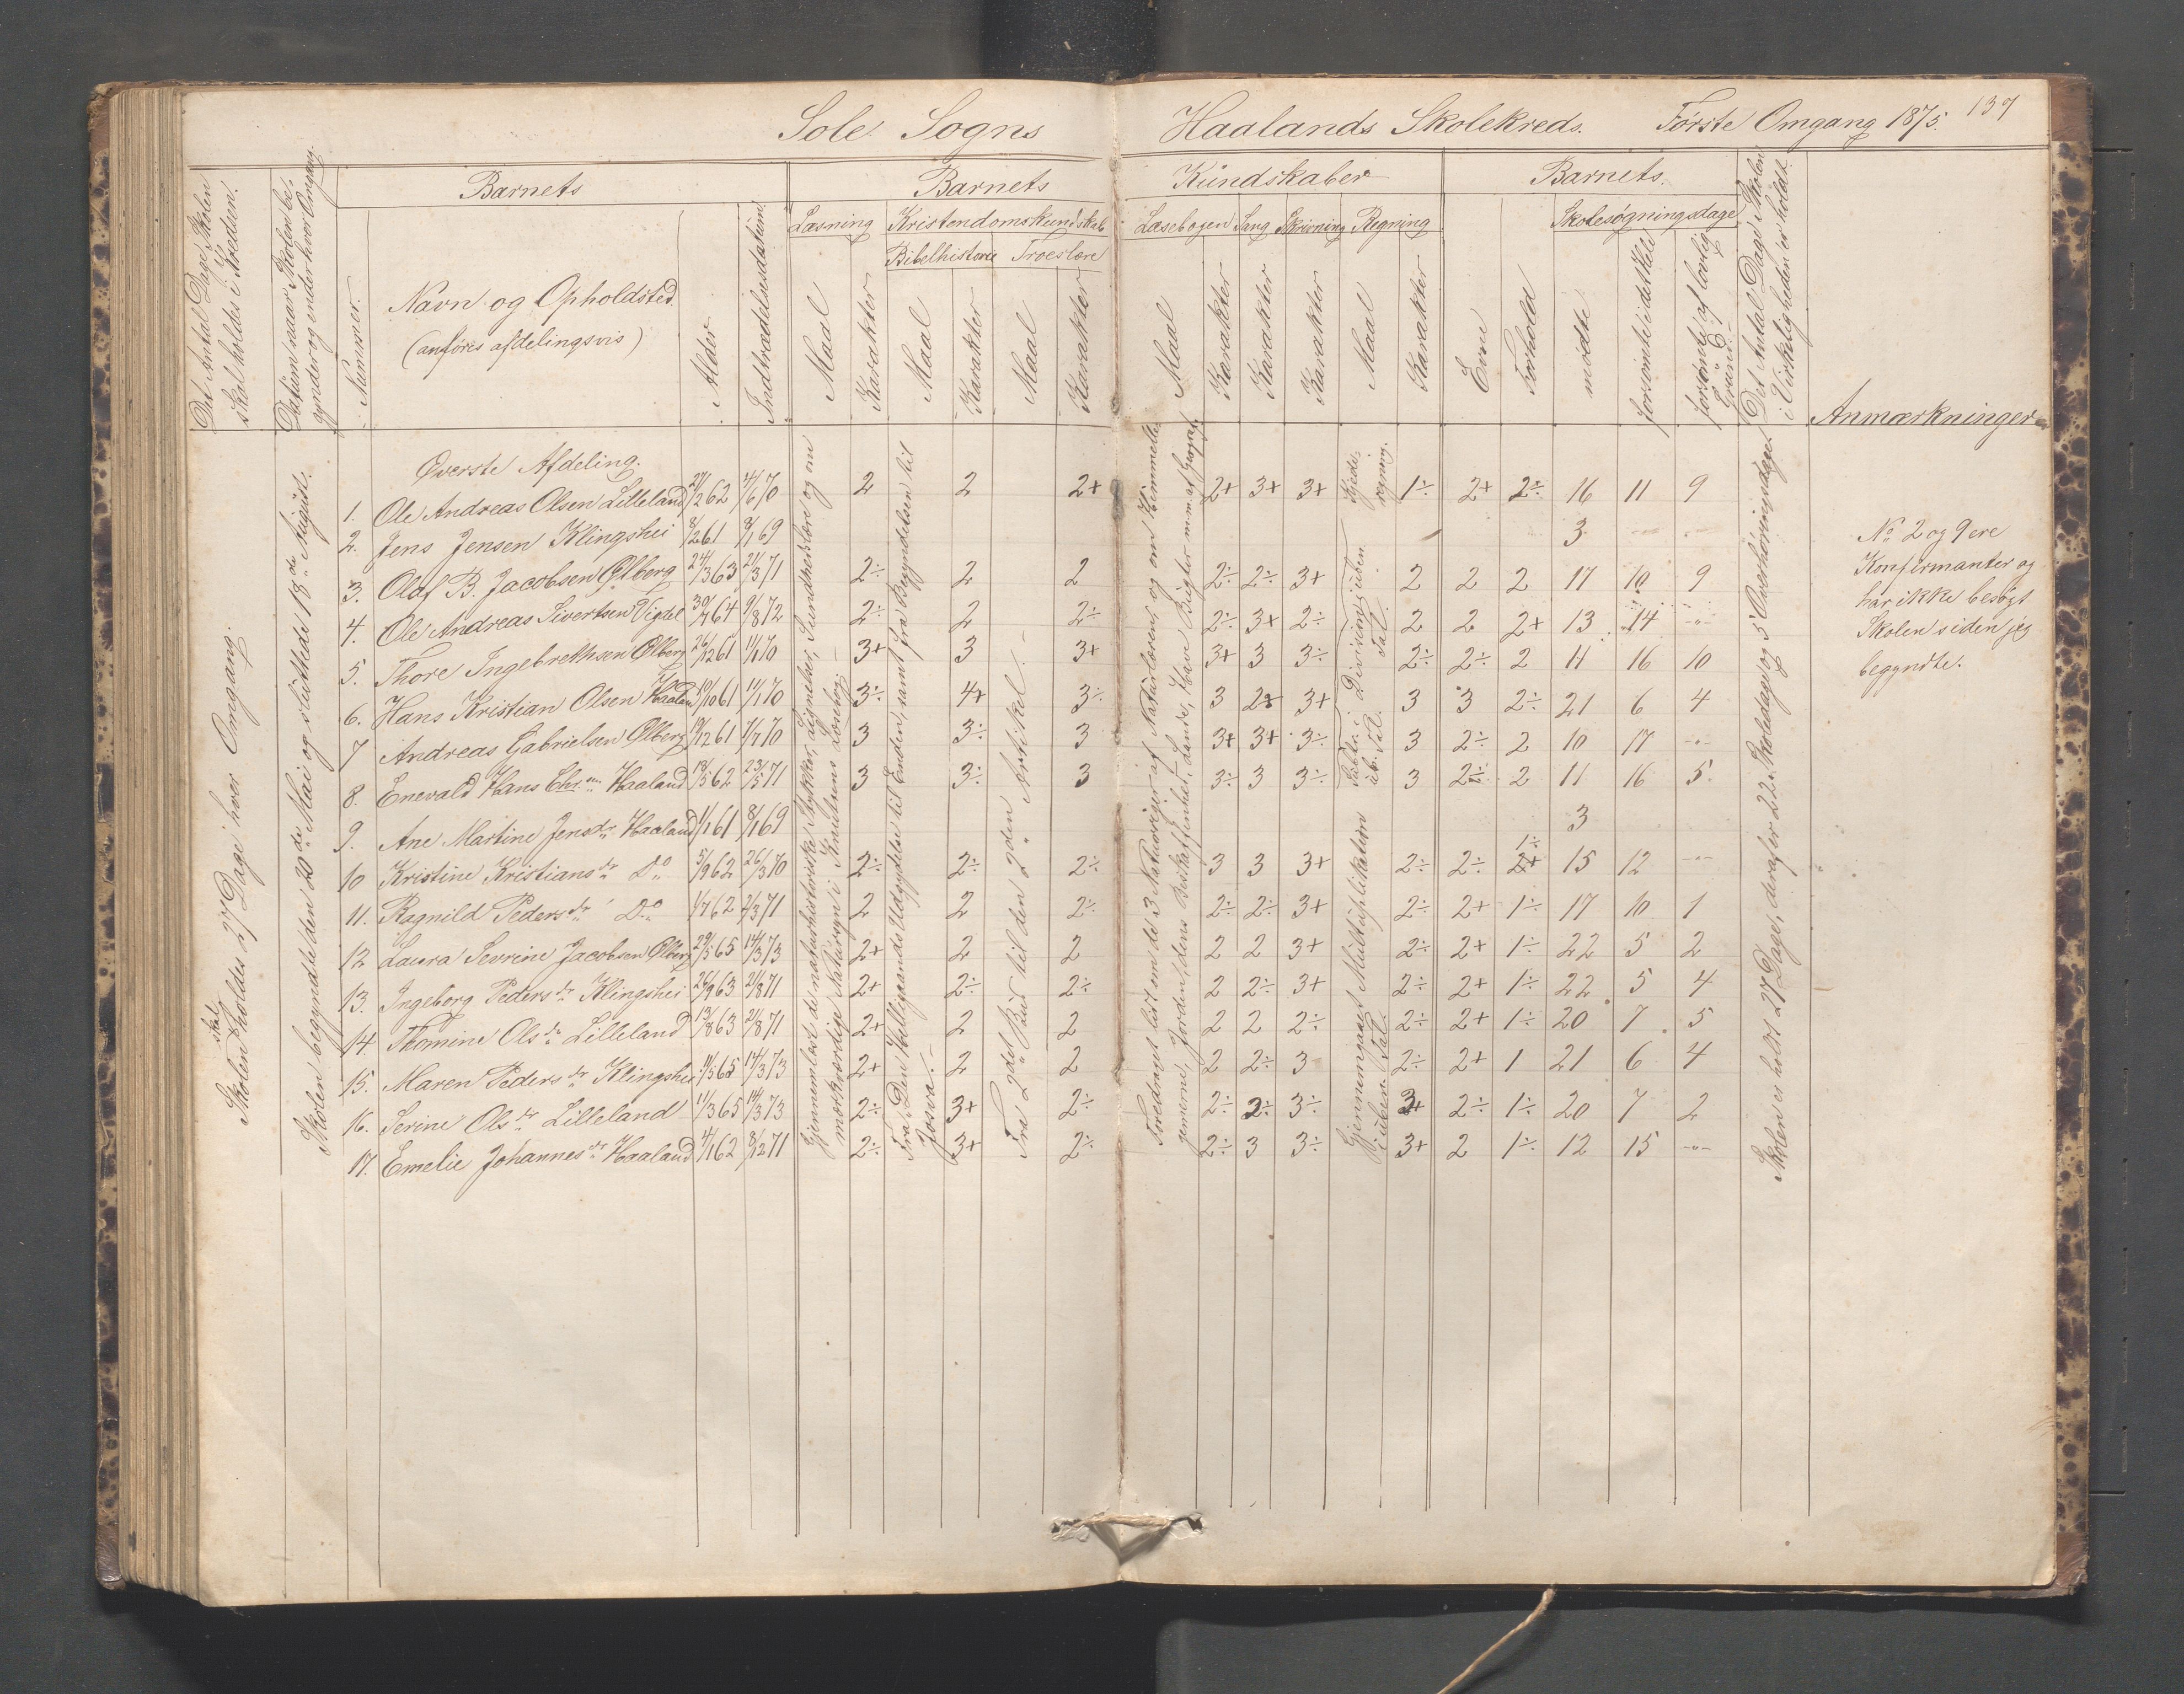 Sole Sogns Haalands Skolekreds. Første Omgang 1875. 137
Barnets Barnets Kundskaber Barnets.
Læsning Kristendomskundskab Læsebogen Sang Skrivning Regning Skolesøgningsdage
Bibelhistorie Troeslære
Det Antal Dage Skolen
skal holdes i Kredsen.
Datum naar Skolen be-
gynder og ender hver Omgang.
Nummer.
Navn og Opholdsted
(anføres afdelingsvis)
Alder
Indtrædelsesdatum
Maal Karakter Maal Karakter Maal Karakter
Maal Karakter Karakter Karakter Maal Karakter
Evne Forhold mødte forsømte i det Hele
forsømte af lovlig
Grund.
Det Antal Dage Skolen
i Virkeligheden er holdt.
Anmærkninger
Skolen skal holdes 27 Dage i hver Omgang.
Skolen begyndte den 20de Mai og sluttede 18de August.
Øverste Afdeling.
1. Ole Andreas Olsen Lilleland 27/2 62 7/6 70 2 2 2+ 2+ 3+ 3+ 1÷ 2+ 2÷ 16 11 9
2. Jens Jensen Klingshei 8/2 61 8/1 69 3
3. Olaf B. Jacobsen Ølberg 24/3 63 21/3 71 2÷ 2 2 2÷ 2÷ 3+ 2 2 2 17 10 9
4. Ole Andreas Sivertsen Vigdel 30/7 64 9/8 72 2÷ 2 2÷ 2÷ 3+ 2÷ 2 2 2+ 13 14 -"-
5. Thore Ingebrethsen Ølberg 26/12 61 11/1 70 3+ 3 3+ 3+ 3 3÷ 2÷ 2÷ 2 11 16 10
6. Hans Kristian Olsen Haaland 10/10 61 11/1 70 3÷ 4+ 3÷ 3 2÷ 3+ 3 3 2÷ 21 6 4
7 Andreas Gabrielsen Ølberg 19/12 61 7/7 70 3 3÷ 3 3+ 3+ 3÷ 3 2÷ 2 10 17 -"-
8. Enevald Hans Chr.sen Haaland 18/5 62 23/5 71 3 3÷ 3 3÷ 3 3÷ 3 2÷ 2 11 16 5
9. Ane Martine Jensdr Haaland 1/1 61 8/1 69 3
10 Kristine Kristiansdr Do 5/9 62 26/3 70 2÷ 2÷ 2÷ 3 3 3+ 2÷ 2÷ 1÷ 15 12 -"-
11. Ragnild Pedersdr Do 1/7 62 2/3 71 2 2 2÷ 2÷ 2÷ 3+ 2÷ 2+ 1÷ 17 10 1
12 Laura Sevrine Jacobsen Ølberg 29/5 65 14/3 73 2+ 2 2 2 2 3+ 2÷ 2+ 1÷ 22 5 2
13. Ingeborg Pedersdr Klingshei 26/9 63 21/8 71 2+ 2÷ 2÷ 2 2÷ 3+ 2÷ 2+ 1÷ 22 5 4
14 Thomine Olsdr Lilleland 13/8 63 21/8 71 2+ 2 2 2 2 2÷ 2÷ 2+ 1÷ 20 7 5
15. Maren Pedersdr Klingshei 11/5 65 14/3 73 2+ 2 2 2 2÷ 3 2÷ 2+ 1 21 6 4
16. Serine Olsdr Lilleland 11/3 65 14/3 73 2÷ 3+ 2÷ 2÷ 2÷ 3÷ 3+ 2÷ 1÷ 20 7 2
17. Emelie Johannesdr Haaland 4/1 62 8/12 71 2÷ 3+ 2÷ 2÷ 3 3÷ 3+ 2 1÷ 12 15 -"-
Gjennemlæst de naturhistoriske Stykker, Lignelser, Sundhedslære og om
mærkværdige Natursyn i Knudsens Læsebog.
Fra Den Helligaands Udgydelse til Enden, samt fra Begyndelsen til
Josva.
Fra 2det Bud til den 2den Artikel.
Foredraget lidt om de 3 Naturriger af Naturlæren, og om Himmelle-
gemerne, Jorden, dens Beskaffenhed, Lande, Have Bugter m.m. af Geograf.
Kjede-
regning.
Division i uben.
Tal.
Subtr. i
ub. Tal.
Gjennemgaaet Multiplikation
i uben. Tal.
Skolen er holdt 27 Dage, deraf er 22 Skoledage og 5 Overhøringsdage.
No 2 og 9 ere
Konfirmanter og
har ikke besøgt
Skolen siden jeg
begyndte.